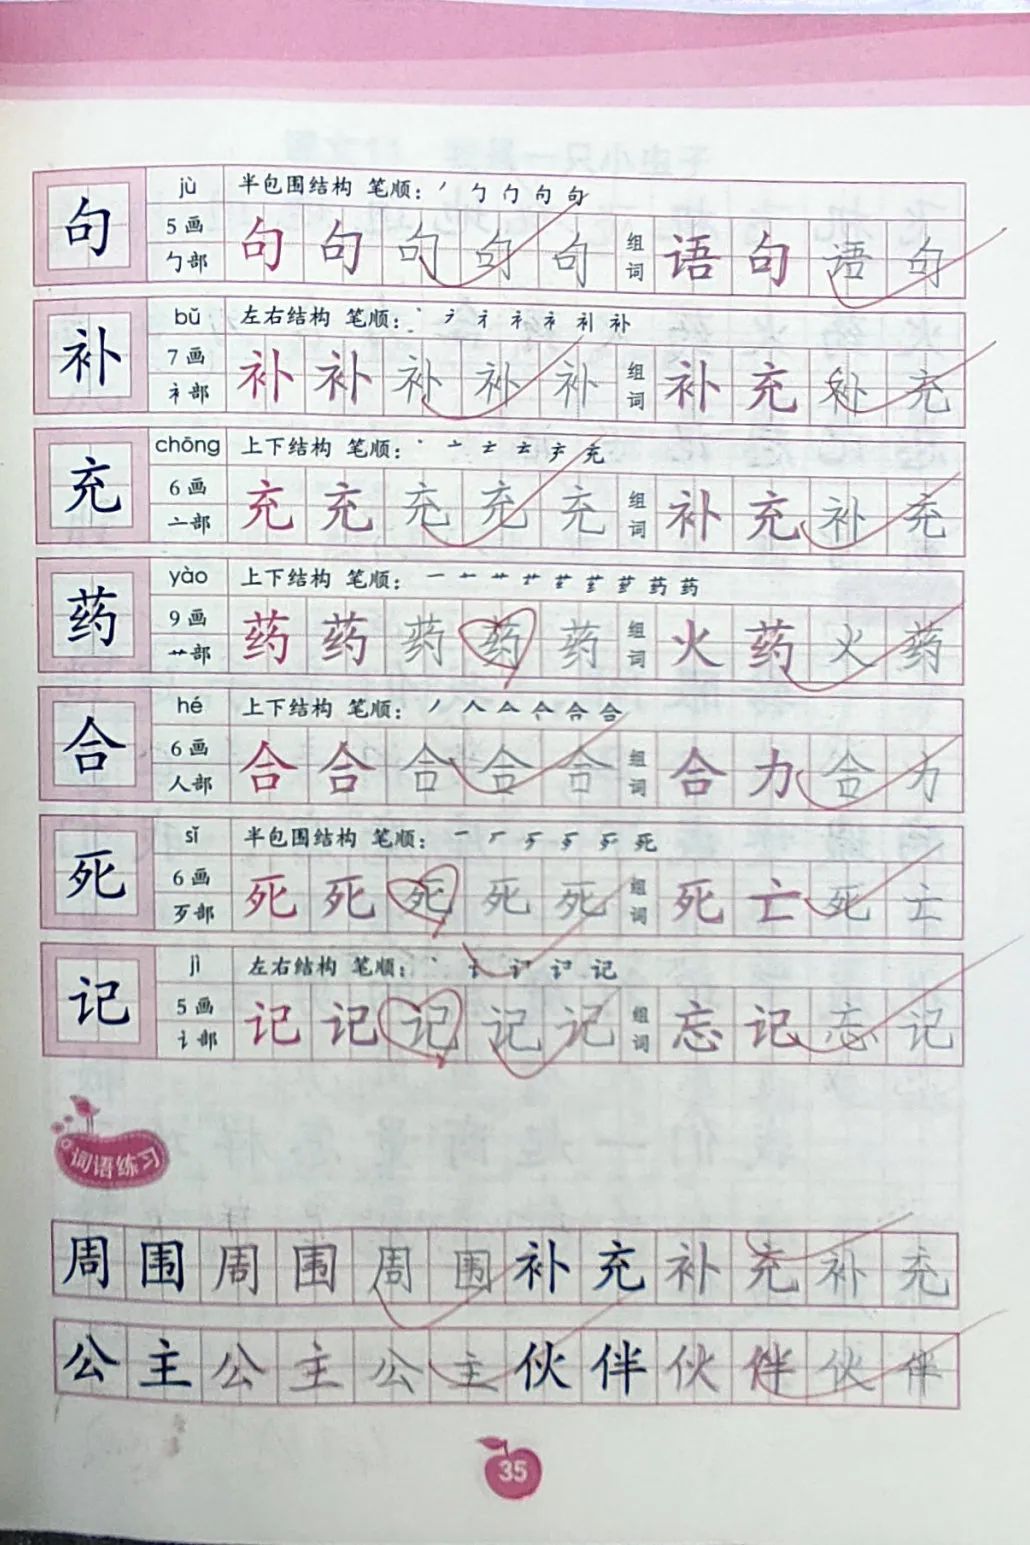 jù 半包围结构 笔顺： ノ 勹 勹 句 句
句 5画 勹部 句 句 句 句 句 组词 语 句 语 句
bǔ 左右结构 笔顺： 丶 礻 衤 补
补 7画 衤部 补 补 补 补 补 组词 补 充 补 充
chōng 上下结构 笔顺： 丶 亠 充
充 6画 亠部 充 充 充 充 充 组词 补 充 补 充
yào 上下结构 笔顺： 一 艹 药 药
药 9画 艹部 药 药 药 药 药 组词 火 药 火 药
hé 上下结构 笔顺： ノ 人 合 合
合 6画 人部 合 合 合 合 合 组词 合 力 合 力
sǐ 半包围结构 笔顺： 一 歹 死
死 6画 歹部 死 死 死 死 死 组词 死 亡 死 亡
jì 左右结构 笔顺： 丶 讠 记
记 5画 讠部 记 记 记 记 记 组词 忘 记 忘 记
词语练习
周 围 周 围 周 围 补 充 补 充 补 充
公 主 公 主 公 主 伙 伴 伙 伴 伙 伴
35